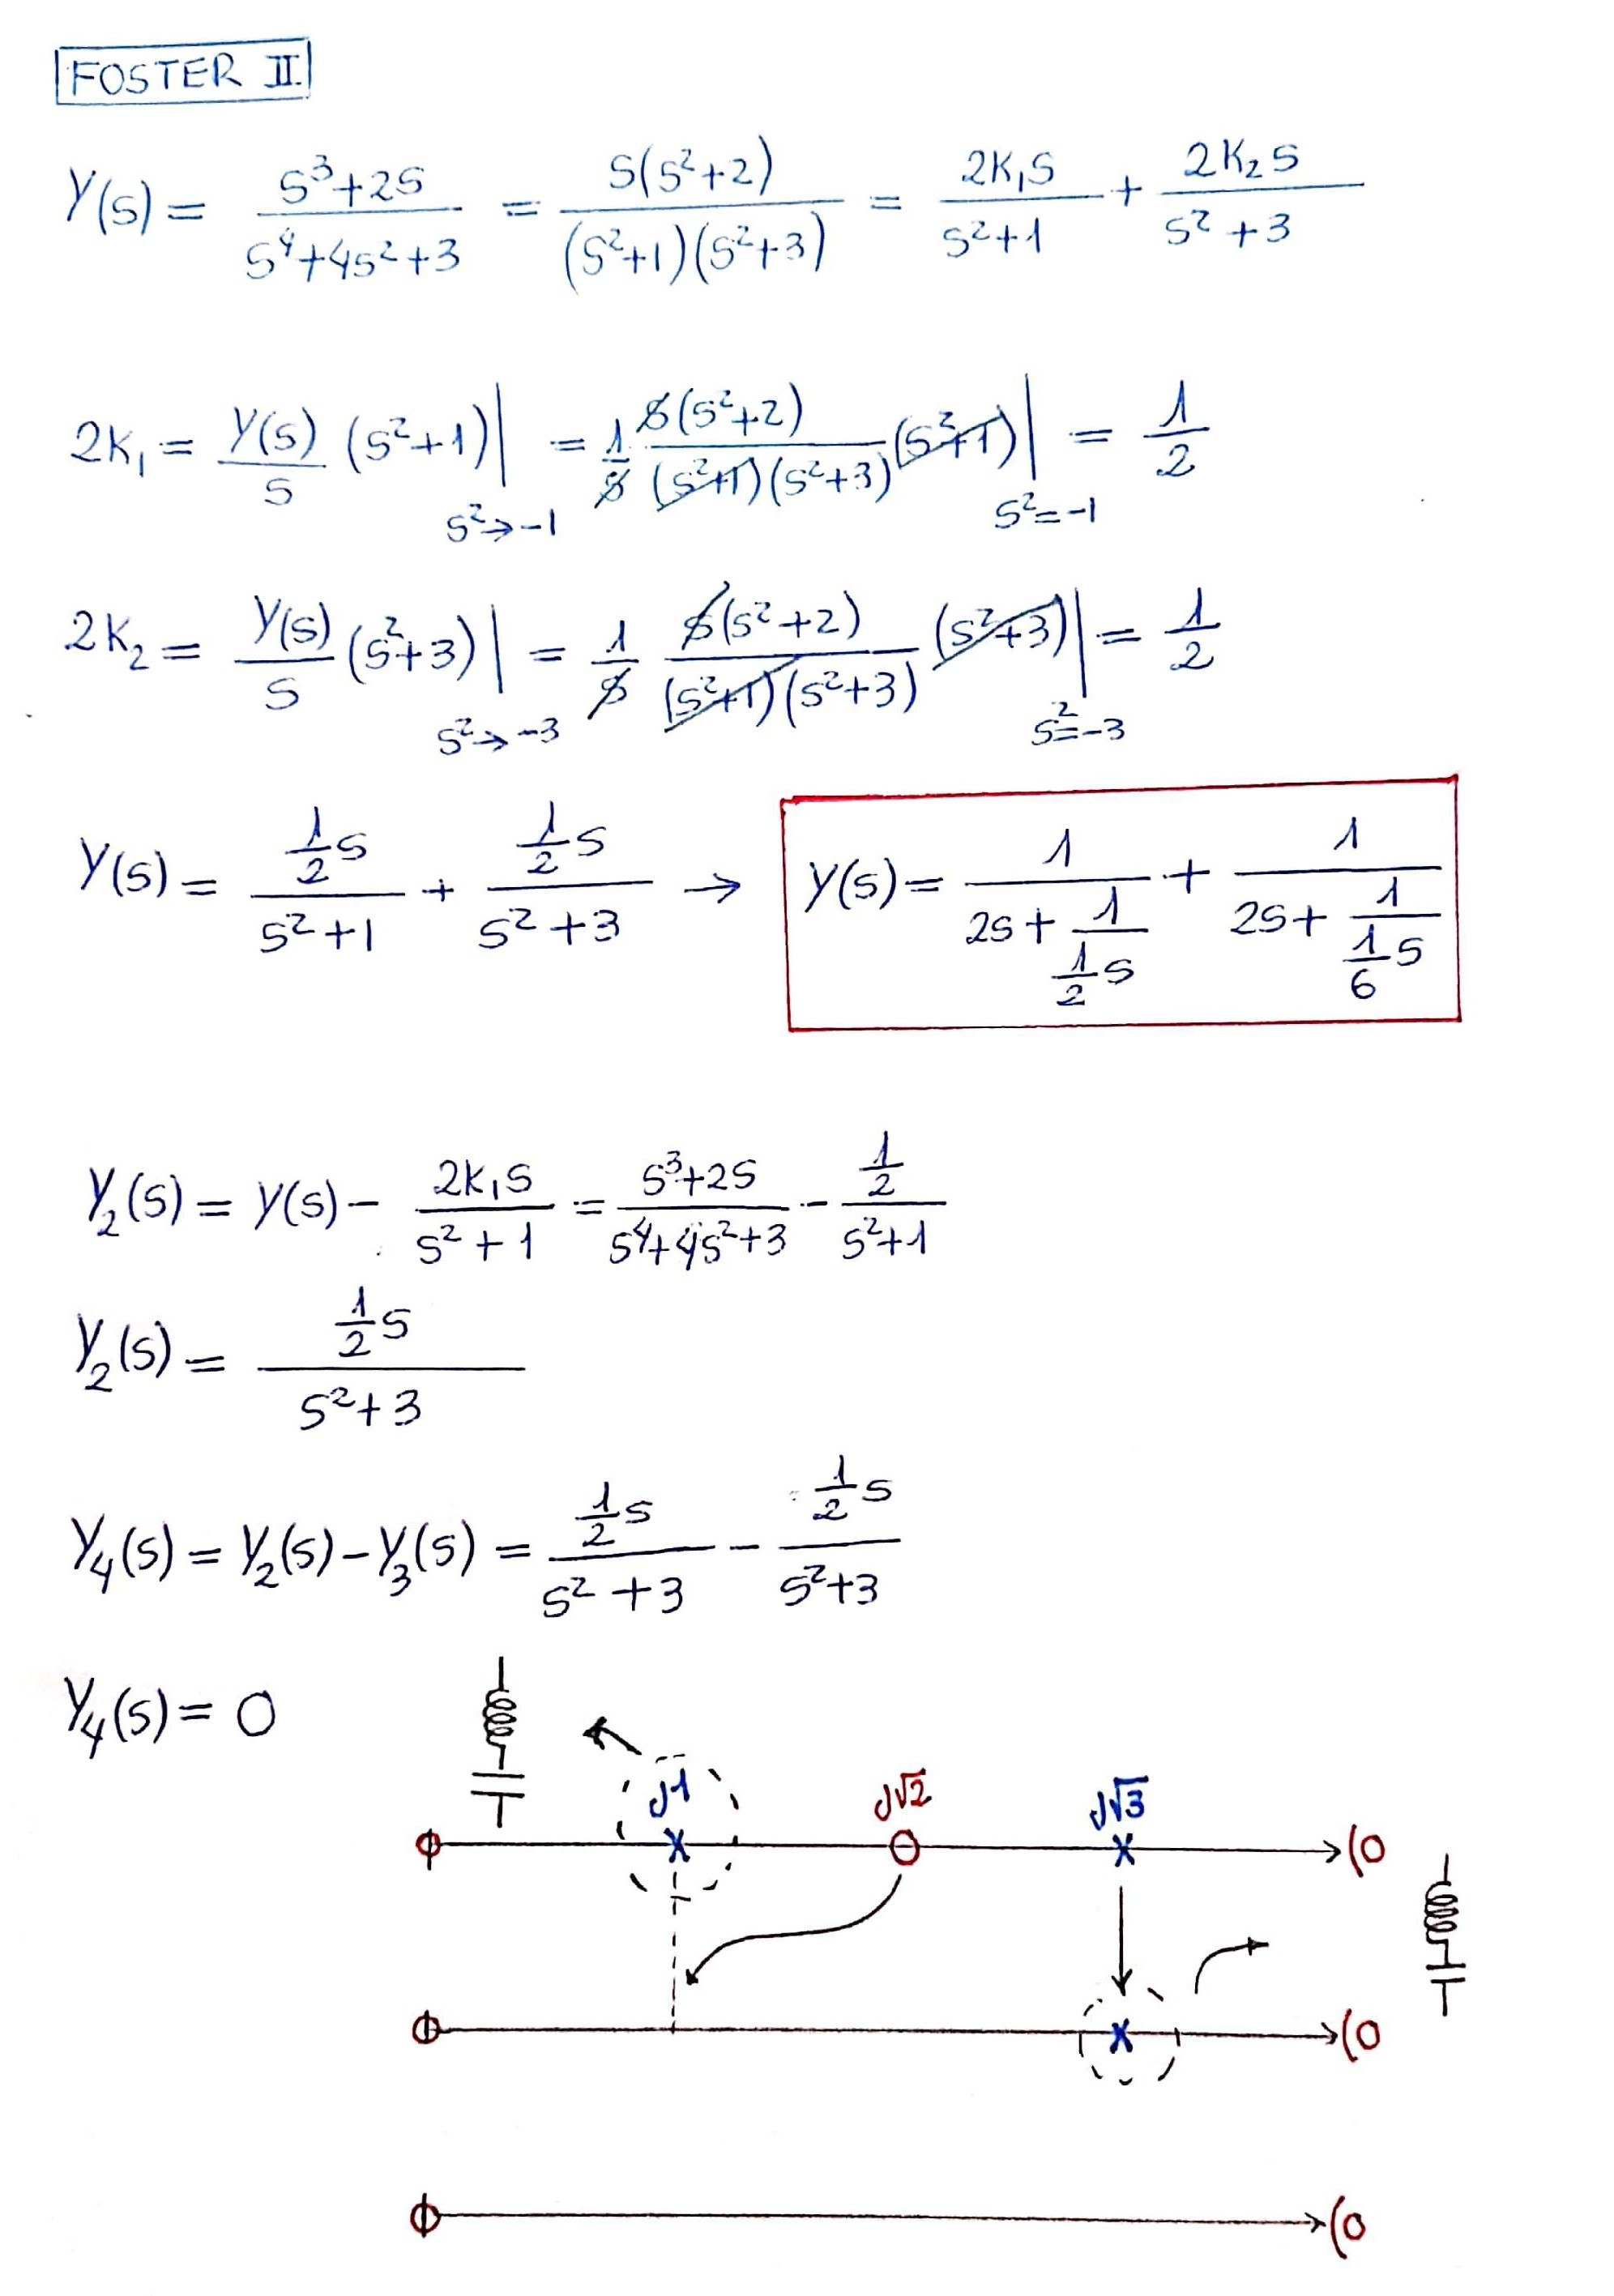 FOSTER II.
Y(s) = (s³+2s)/(s⁴+4s²+3) = s(s²+2)/((s²+1)(s²+3)) = 2K₁s/(s²+1) + 2K₂s/(s²+3)
2K₁ = Y(s)/s (s²+1)|s²→-1 = 1/s s(s²+2)/((s²+1)(s²+3)) (s²+1)|s²=-1 = 1/2
2K₂ = Y(s)/s (s²+3)|s²→-3 = 1/s s(s²+2)/((s²+1)(s²+3)) (s²+3)|s²=-3 = 1/2
Y(s) = (1/2 s)/(s²+1) + (1/2 s)/(s²+3) → Y(s) = 1/(2s + 1/(1/2 s)) + 1/(2s + 1/(1/6 s))
Y₂(s) = Y(s) - 2K₁s/(s²+1) = (s³+2s)/(s⁴+4s²+3) - (1/2)/(s²+1)
Y₂(s) = (1/2 s)/(s²+3)
Y₄(s) = Y₂(s) - Y₃(s) = (1/2 s)/(s²+3) - (1/2 s)/(s²+3)
Y₄(s) = 0
j1 j√2 j√3